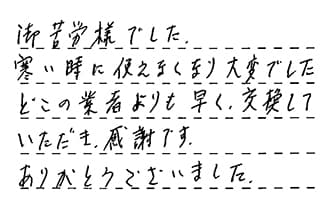 御苦労様でした.
寒い時に使えなくなり大変でした
どこの業者よりも早く、交換して
いただき、感謝です.
ありがとうございました.